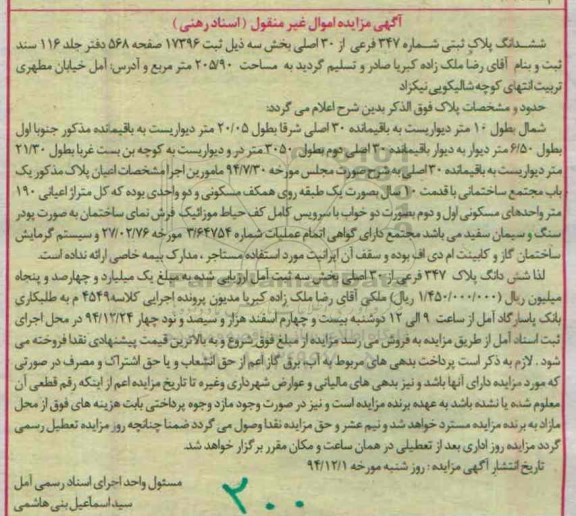 آگهی مزایده اموال غیر منقول ( اسناد رهنی )
ششدانگ پلاک ثبتی شماره ۳۴۷ فرعی از ۳۰ اصلی بخش سه ذیل ثبت ۱۷۳۹۶ صفحه ۵۶۸ دفتر جلد ۱۱۶ سند
ثبت و بنام آقای رضا ملک زاده کبریا صادر و تسلیم گردید به مساحت ۲۰۵/۹۰ متر مربع و آدرس: آمل خیابان مطهری
تربیت انتهای کوچه شالیکوبی نیکزاد
حدود و مشخصات پلاک فوق الذکر بدین شرح اعلام می گردد:
شمال بطول ۱۰ متر دیواریست به باقیمانده ۳۰ اصلی شرقا بطول ۲۰/۰۵ متر دیواریست به باقیمانده مذکور جنوبا اول
بطول ۶/۵۰ متر دیوار به دیوار باقیمانده ۳۰ اصلی دوم بطول ۳۰۵۰ متر در و دیواریست به کوچه بن بست غربا بطول ۲۱/۳۰
متر دیواریست به باقیمانده ۳۰ اصلی به شرح صورت مجلس مورخه ۹۴/۷/۳۰ مامورین اجرا مشخصات اعیان پلاک مذکور یک
باب مجتمع ساختمانی با قدمت ۱۰ سال بصورت یک طبقه روی همکف مسکونی و دو واحدی بوده که کل متراژ اعیانی ۱۹۰
متر واحدهای مسکونی اول و دوم بصورت دو خواب با سرویس کامل کف حیاط موزائیک فرش نمای ساختمان به صورت پودر
سنگ و سیمان سفید می باشد مجتمع دارای گواهی اتمام عملیات شماره ۳/۶۴۷۵۴ مورخه ۲۷/۰۲/۷۶ و سیستم گرمایش
ساختمان گاز و کابینت ام دی اف بوده و سقف آن ایرانیت مورد استفاده مستاجر ، مدارک بیمه خاصی ارائه نداده است.
لذا شش دانگ پلاک ۳۴۷ فرعی از ۳۰ اصلی بخش سه ثبت آمل ارزیابی شده به مبلغ یک میلیارد و چهارصد و پنجاه
میلیون ریال (۱/۴۵۰/۰۰۰/۰۰۰ ریال) ملکی آقای رضا ملک زاده کبریا مدیون پرونده اجرایی کلاسه ۴۵۴۹ م به طلبکاری
بانک پاسارگاد آمل از ساعت ۹ الی ۱۲ دوشنبه بیست و چهارم اسفند هزار و سیصد و نود چهار ۹۴/۱۲/۲۴ در محل اجرای
ثبت اسناد آمل از طریق مزایده به فروش می رسد مزایده از مبلغ فوق شروع و به بالاترین قیمت پیشنهادی نقدا فروخته می
شود . لازم به ذکر است پرداخت بدهی های مربوط به آب، برق گاز اعم از حق انشعاب و یا حق اشتراک و مصرف در صورتی
که مورد مزایده دارای آنها باشد و نیز بدهی های مالیاتی و عوارض شهرداری وغیره تا تاریخ مزایده اعم از اینکه رقم قطعی آن
معلوم شده یا نشده باشد به عهده برنده مزایده است و نیز در صورت وجود مازد وجوه پرداختی بابت هزینه های فوق از محل
مازاد به برنده مزایده مسترد خواهد شد و نیم عشر و حق مزایده نقدا وصول می گردد ضمنا چنانچه روز مزایده تعطیل رسمی
گردد مزایده روز اداری بعد از تعطیلی در همان ساعت و مکان مقرر برگزار خواهد شد.
تاریخ انتشار آگهی مزایده : روز شنبه مورخه ۹۴/۱۲/۱
مسئول واحد اجرای اسناد رسمی آمل
سید اسماعیل بنی هاشمی
۲۰۰